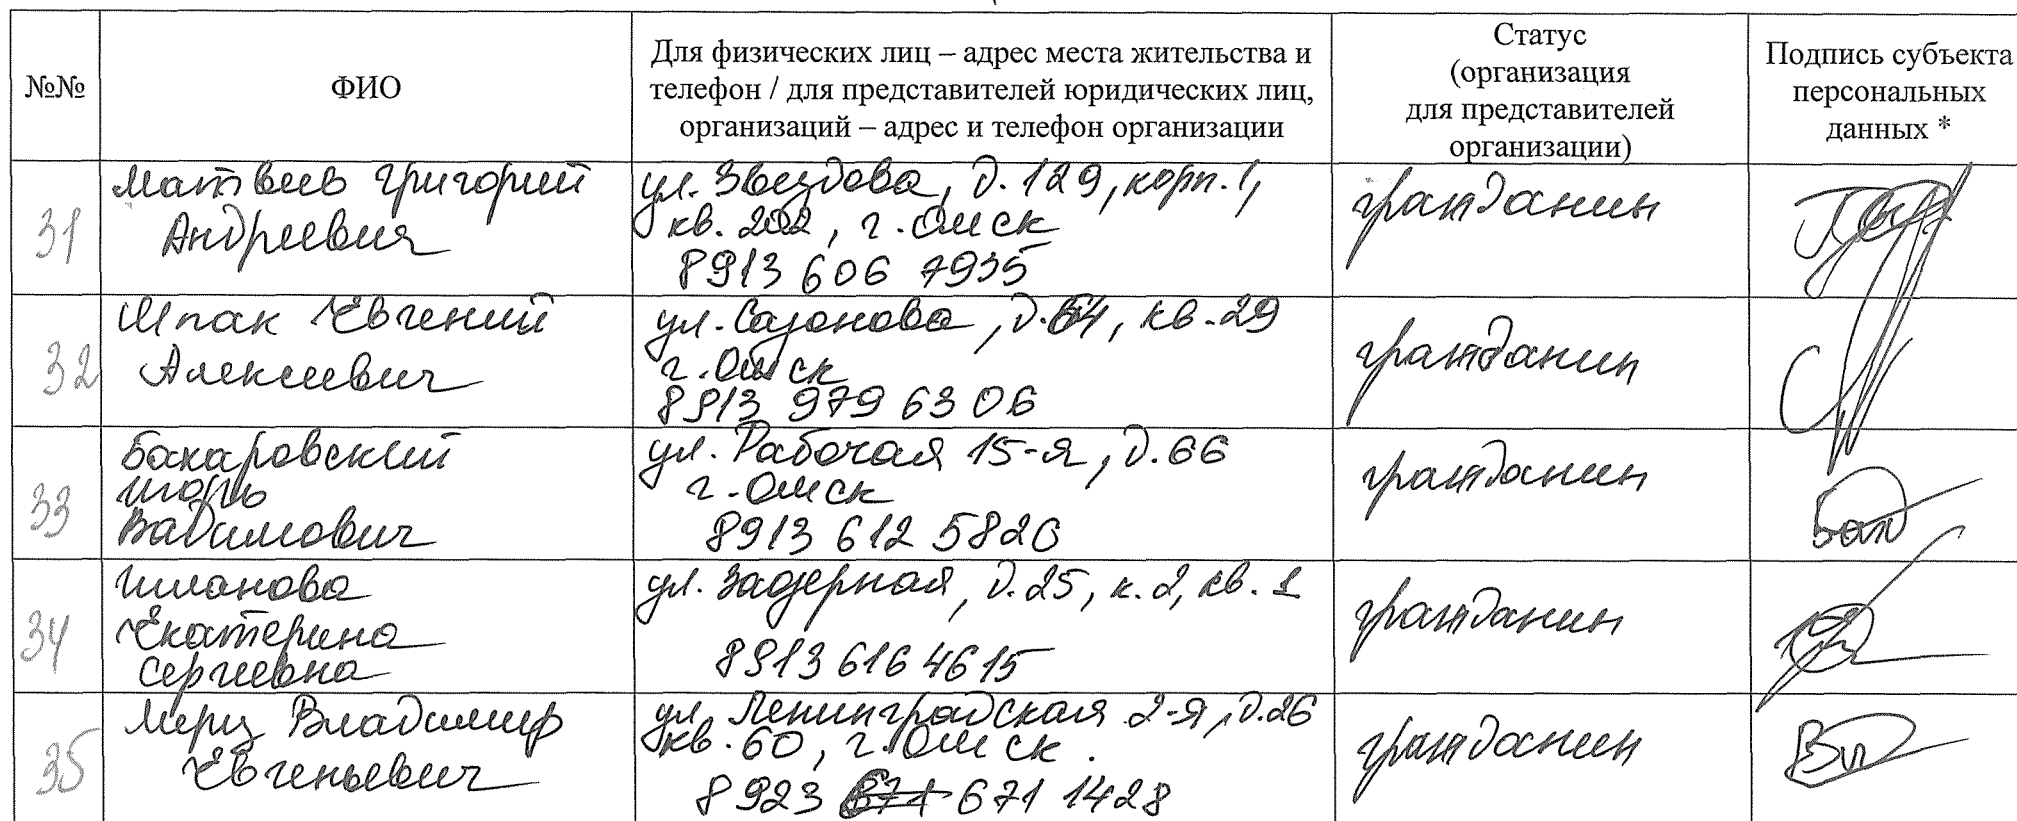 №№
ФИО
Для физических лиц – адрес места жительства и
телефон / для представителей юридических лиц,
организаций – адрес и телефон организации
Статус
(организация
для представителей
организации)
Подпись субъекта
персональных
данных *
31
Матвеев Григорий
Андреевич
ул. Звездова, д. 129, корп. 1,
кв. 202, г. Омск
8913 606 7935
гражданин
32
Шпак Евгений
Алексеевич
ул. Сазонова, д. 64, кв. 29
г. Омск
8913 979 6306
гражданин
33
Бакаровский
Игорь
Вадимович
ул. Рабочая 15-я, д. 66
г. Омск
8913 612 5826
гражданин
34
Екатерина
Сергеевна
ул. Заозерная, д. 25, к. 2, кв. 1
8913 616 4615
гражданин
35
Мерц Владимир
Евгеньевич
ул. Ленинградская 2-я, д. 26
кв. 60, г. Омск.
8 923 671 671 1428
гражданин